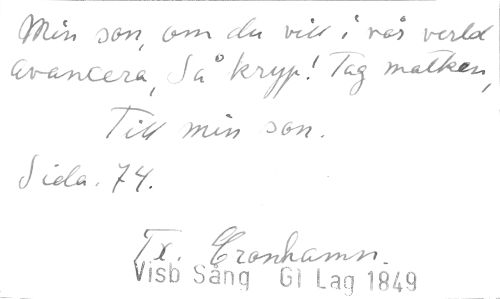 Min son, om du vill i vår verld
avancera, Så kryp! Tag masken,
Till min son.
Sida. 74.
Tx. Cronhamn.
Visb Sång Gl Lag 1849